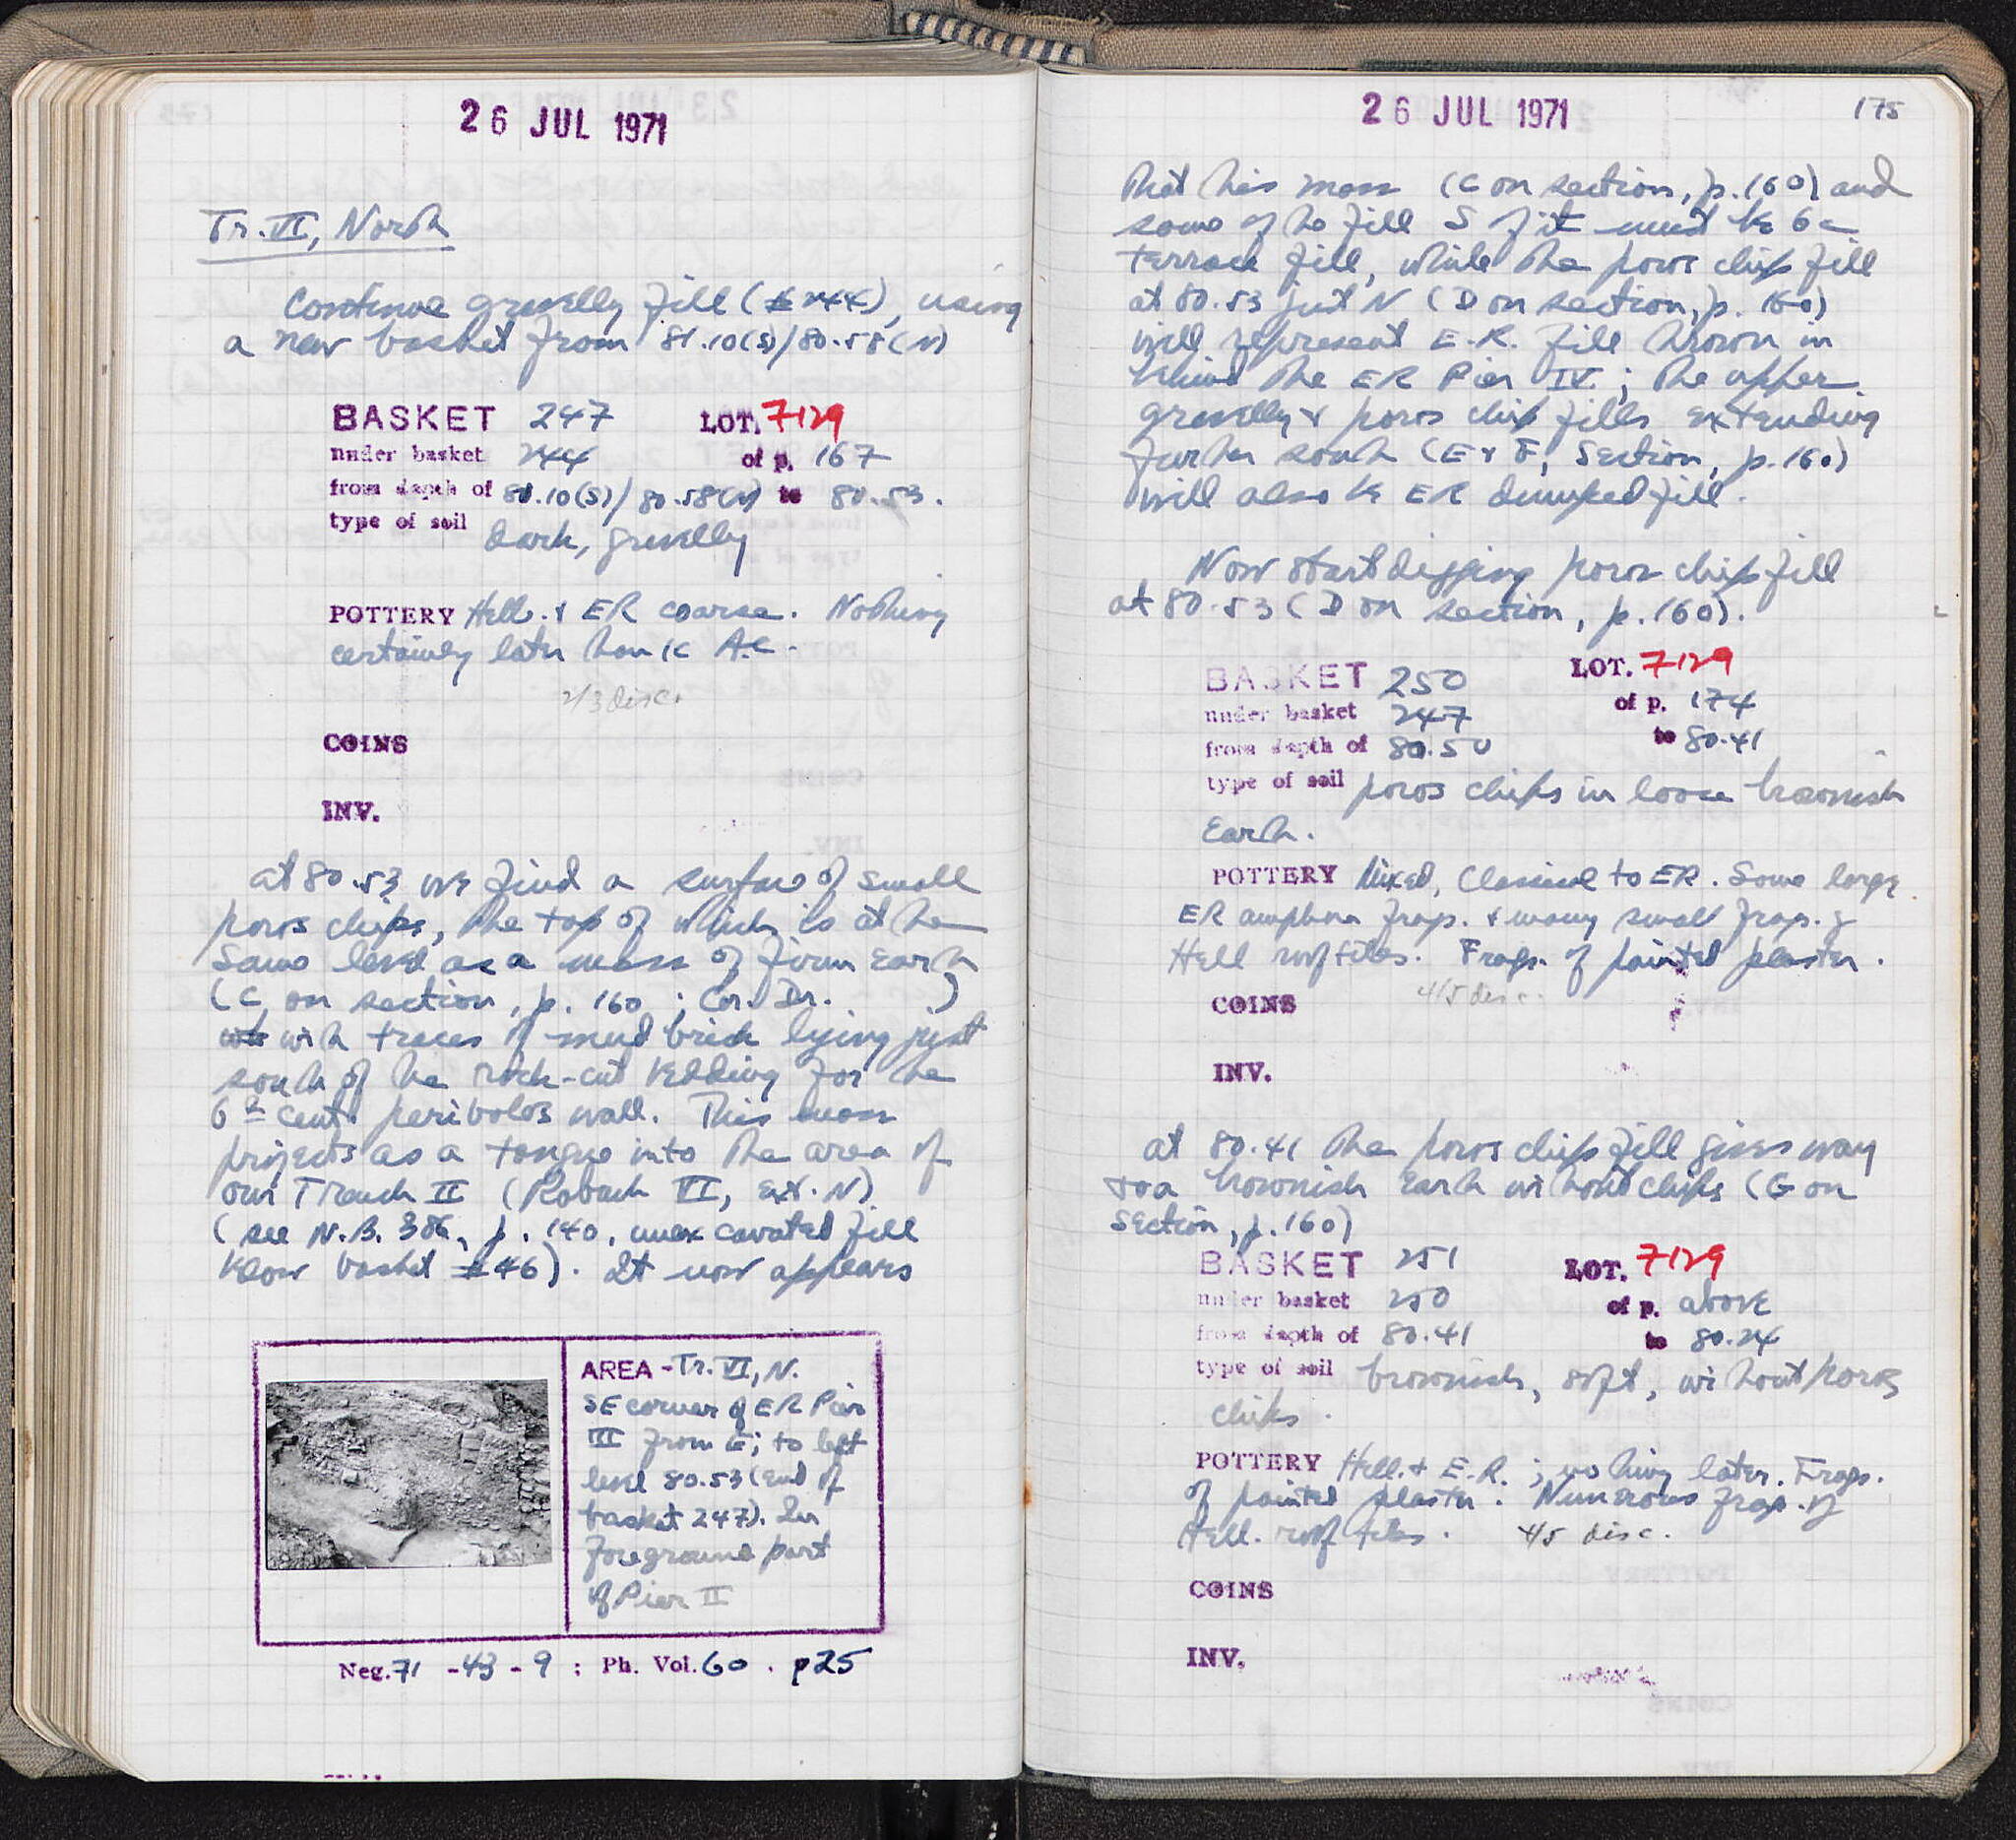 26 JUL 1971
Tr. VI, North
Continue gravelly fill (#244), using
a new basket from 81.10(S)/80.58(N)
BASKET 247 LOT. 7129
under basket 244 of p. 167
from depth of 80.10(S)/80.58(N) to 80.53.
type of soil dark, gravelly
POTTERY Hell. & ER coarse. Nothing
certainly later than 1c A.C.
2/3 disc.
COINS
INV.
at 80.53 we find a surface of small
poros chips, the top of which is at the
same level as a mass of firm earth
(C on section, p. 160; Cor. Dr. )
with traces of mud brick lying just
south of the rock-cut bedding for the
6th cent. peribolos wall. This mass
projects as a tongue into the area of
our Trench II (Robach VI, ext. N)
(see N.B. 386, p. 140, unexcavated fill
below basket #46). It now appears
AREA - Tr. VI, N.
SE corner of ER Pier
III from E; to left
level 80.53 (end of
basket 247). In
foreground part
of Pier II
Neg. 71 -43 - 9 ; Ph. Vol. 60 . p 25
26 JUL 1971 175
that this mass (C on section, p. 160) and
some of the fill S of it must be 6c
terrace fill, while the poros chip fill
at 80.53 just N (D on section, p. 160)
will represent E.R. fill thrown in
behind the ER Pier IV; the upper
gravelly & poros chip fills extending
further south (E & F, Section, p. 160)
will also be ER dumped fill.
Now start digging poros chip fill
at 80.53 (D on section, p. 160).
BASKET 250 LOT. 7129
under basket 247 of p. 174
from depth of 80.50 to 80.41
type of soil poros chips in loose brownish
earth.
POTTERY Mixed, Classical to ER. Some large
ER amphora frags. & many small frags. of
Hell rooftiles. Frags. of painted plaster.
4/5 disc.
COINS
INV.
at 80.41 the poros chip fill gives way
to a brownish earth without chips (G on
section, p. 160)
BASKET 251 LOT. 7129
under basket 250 of p. above
from depth of 80.41 to 80.24
type of soil brownish, soft, without poros
chips.
POTTERY Hell. & E.R.; nothing later. Frags.
of painted plaster. Numerous frags. of
Hell. roof tiles. 4/5 disc.
COINS
INV.